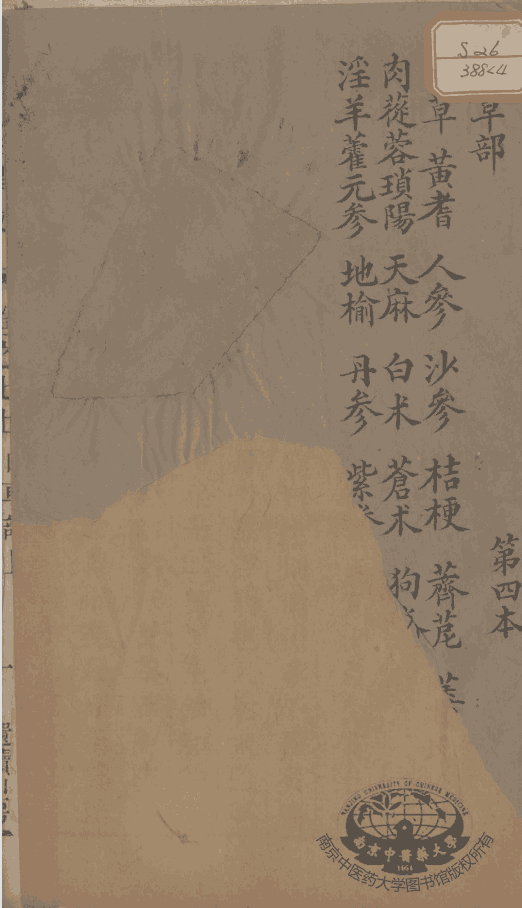 S26
388<4
草部
第四本
草 黃耆 人參 沙參 桔梗 薺苨
肉蓯蓉 瑣陽 天麻 白术 蒼术 狗脊
淫羊藿 元参 地榆 丹参 紫
NANJING UNIVERSITY OF CHINESE MEDICINE
南京中醫藥大學
1954
南京中医药大学图书馆版权所有